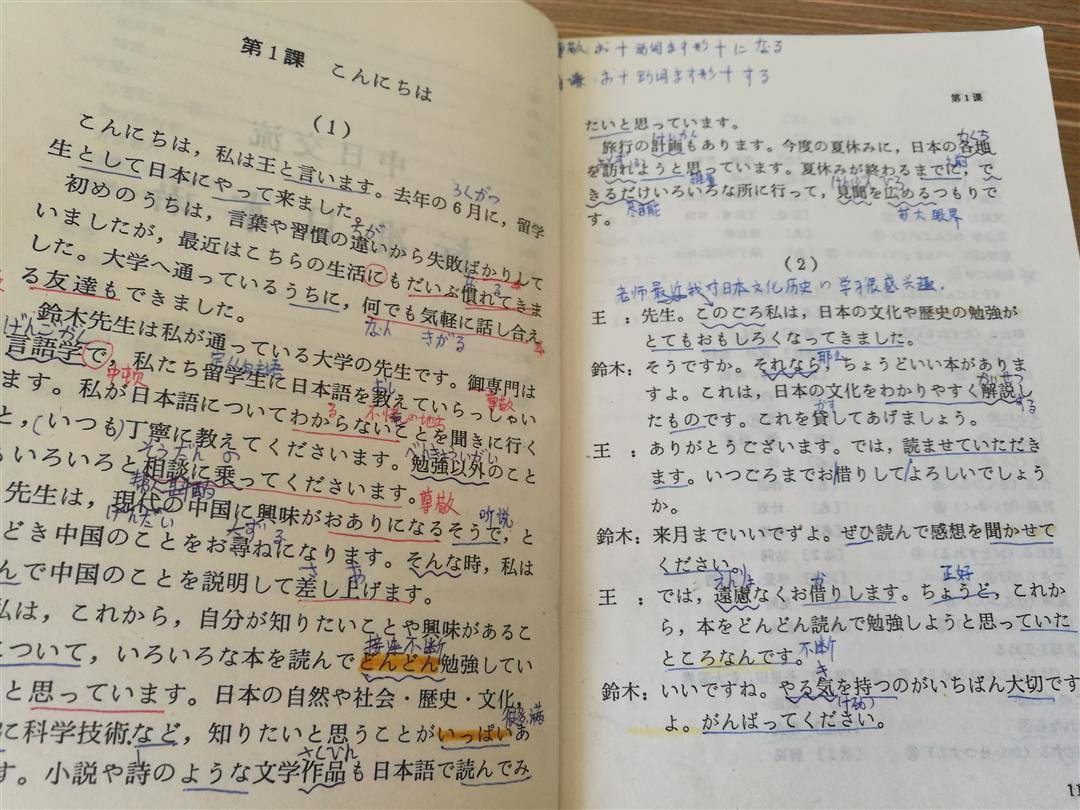 第1課 こんにちは
(1)
こんにちは，私は王と言います。去年の6月に，留学
生として日本にやって来ました。
初めのうちは，言葉や習慣の違いから失敗ばかりして
いましたが，最近はこちらの生活にもだいぶ慣れてきま
した。大学へ通っているうちに，何でも気軽に話し合え
る友達もできました。
鈴木先生は私が通っている大学の先生です。御専門は
言語学で，私たち留学生に日本語を教えていらっしゃい
ます。私が日本語についてわからないことを聞きに行く
と，(いつも)丁寧に教えてくださいます。勉強以外のこと
いろいろと相談に乗ってくださいます。
先生は，現代の中国に興味がおありになるそうで，と
どき中国のことをお尋ねになります。そんな時，私は
んで中国のことを説明して差し上げます。
私は，これから，自分が知りたいことや興味があるこ
について，いろいろな本を読んでどんどん勉強してい
と思っています。日本の自然や社会・歴史・文化，
に科学技術など，知りたいと思うことがいっぱいあ
す。小説や詩のような文学作品も日本語で読んでみ
ろくがつ
ちが
なん きがる
げんごがく
中顿
尊敬
べんきょういがい
そうだん の
尊敬
听说
げんだい
たずねる
さ あ
接连不断
很多,满
さくひん
尊敬 お+动词ます形+になる
自谦 お+动词ます形+する
第1课
たいと思っています。
旅行の計画もあります。今度の夏休みに，日本の各地
を訪れようと思っています。夏休みが終わるまでに，で
きるだけいろいろな所に行って，見聞を広めるつもりで
す。
けいかく
かくち
尽可能
扩大眼界
(2)
老师最近我对日本文化历史の学习很感兴趣.
王 ：先生。このごろ私は，日本の文化や歴史の勉強が
とてもおもしろくなってきました。
鈴木：そうですか。それなら，ちょうどいい本がありま
すよ。これは，日本の文化をわかりやすく解説し
たものです。これを貸してあげましょう。
王 ：ありがとうございます。では，読ませていただき
ます。いつごろまでお借りしてよろしいでしょう
か。
鈴木：来月までいいですよ。ぜひ読んで感想を聞かせて
ください。
王 ：では，遠慮なくお借りします。ちょうど，これか
ら，本をどんどん読んで勉強しようと思っていた
ところなんです。
鈴木：いいですね。やる気を持つのがいちばん大切です
よ。がんばってください。
那么
かいせつ
かす
えんりょ
か
正好
不断
き
11